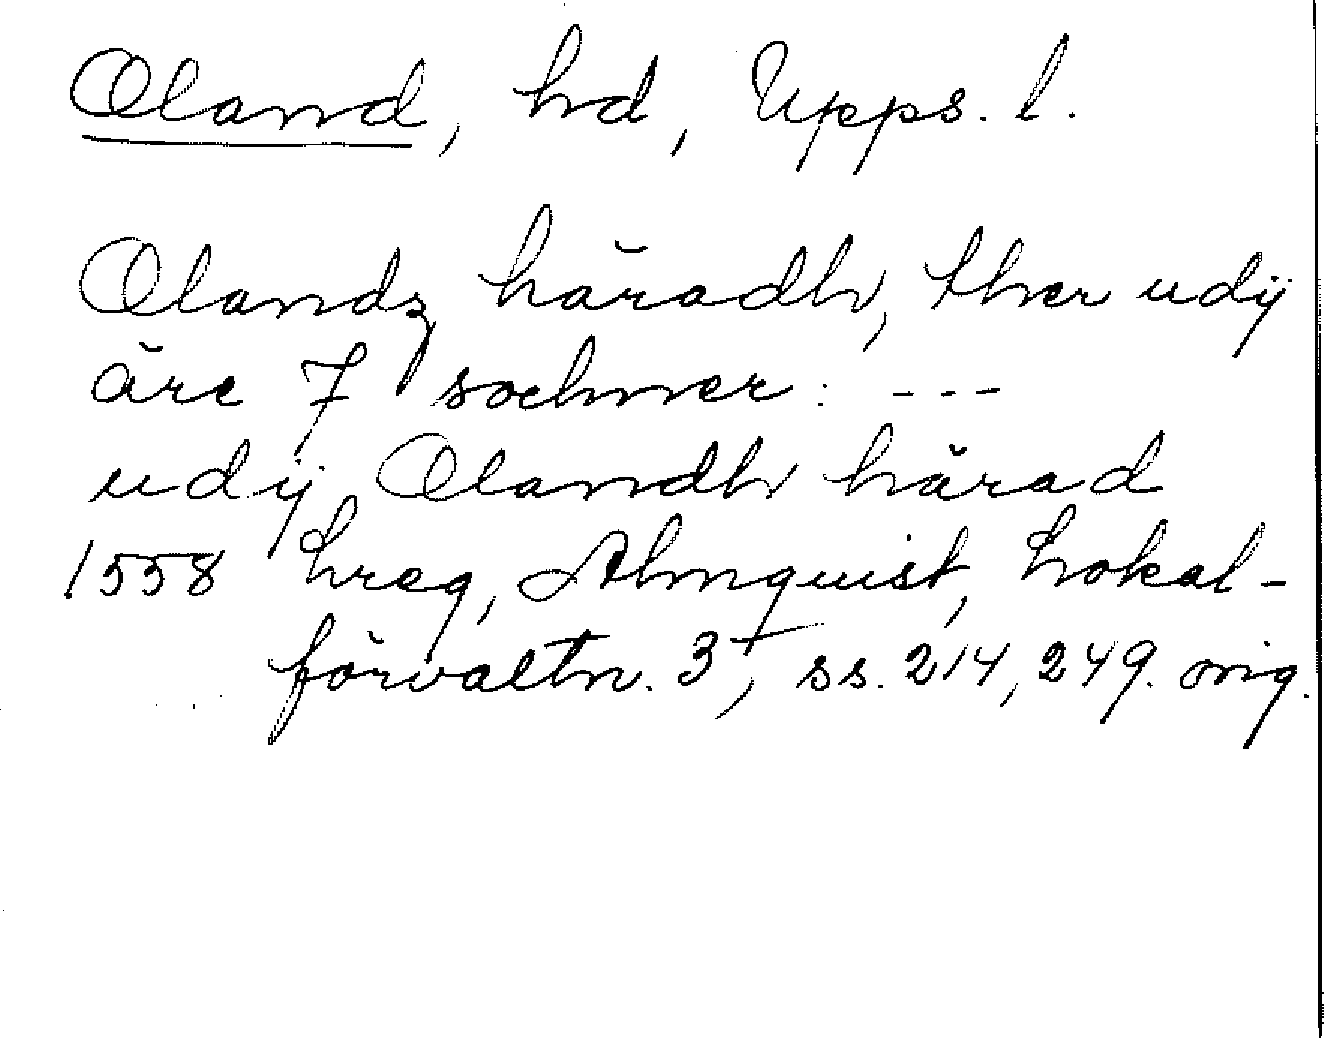 Oland, hd, Upps. l.
Olandz häradh, ther udij
äre 7 sochner: ---
udij Olandh härad
1558 Lreg, Almquist, Lokal-
förvaltn. 3, ss. 214, 249. orig.